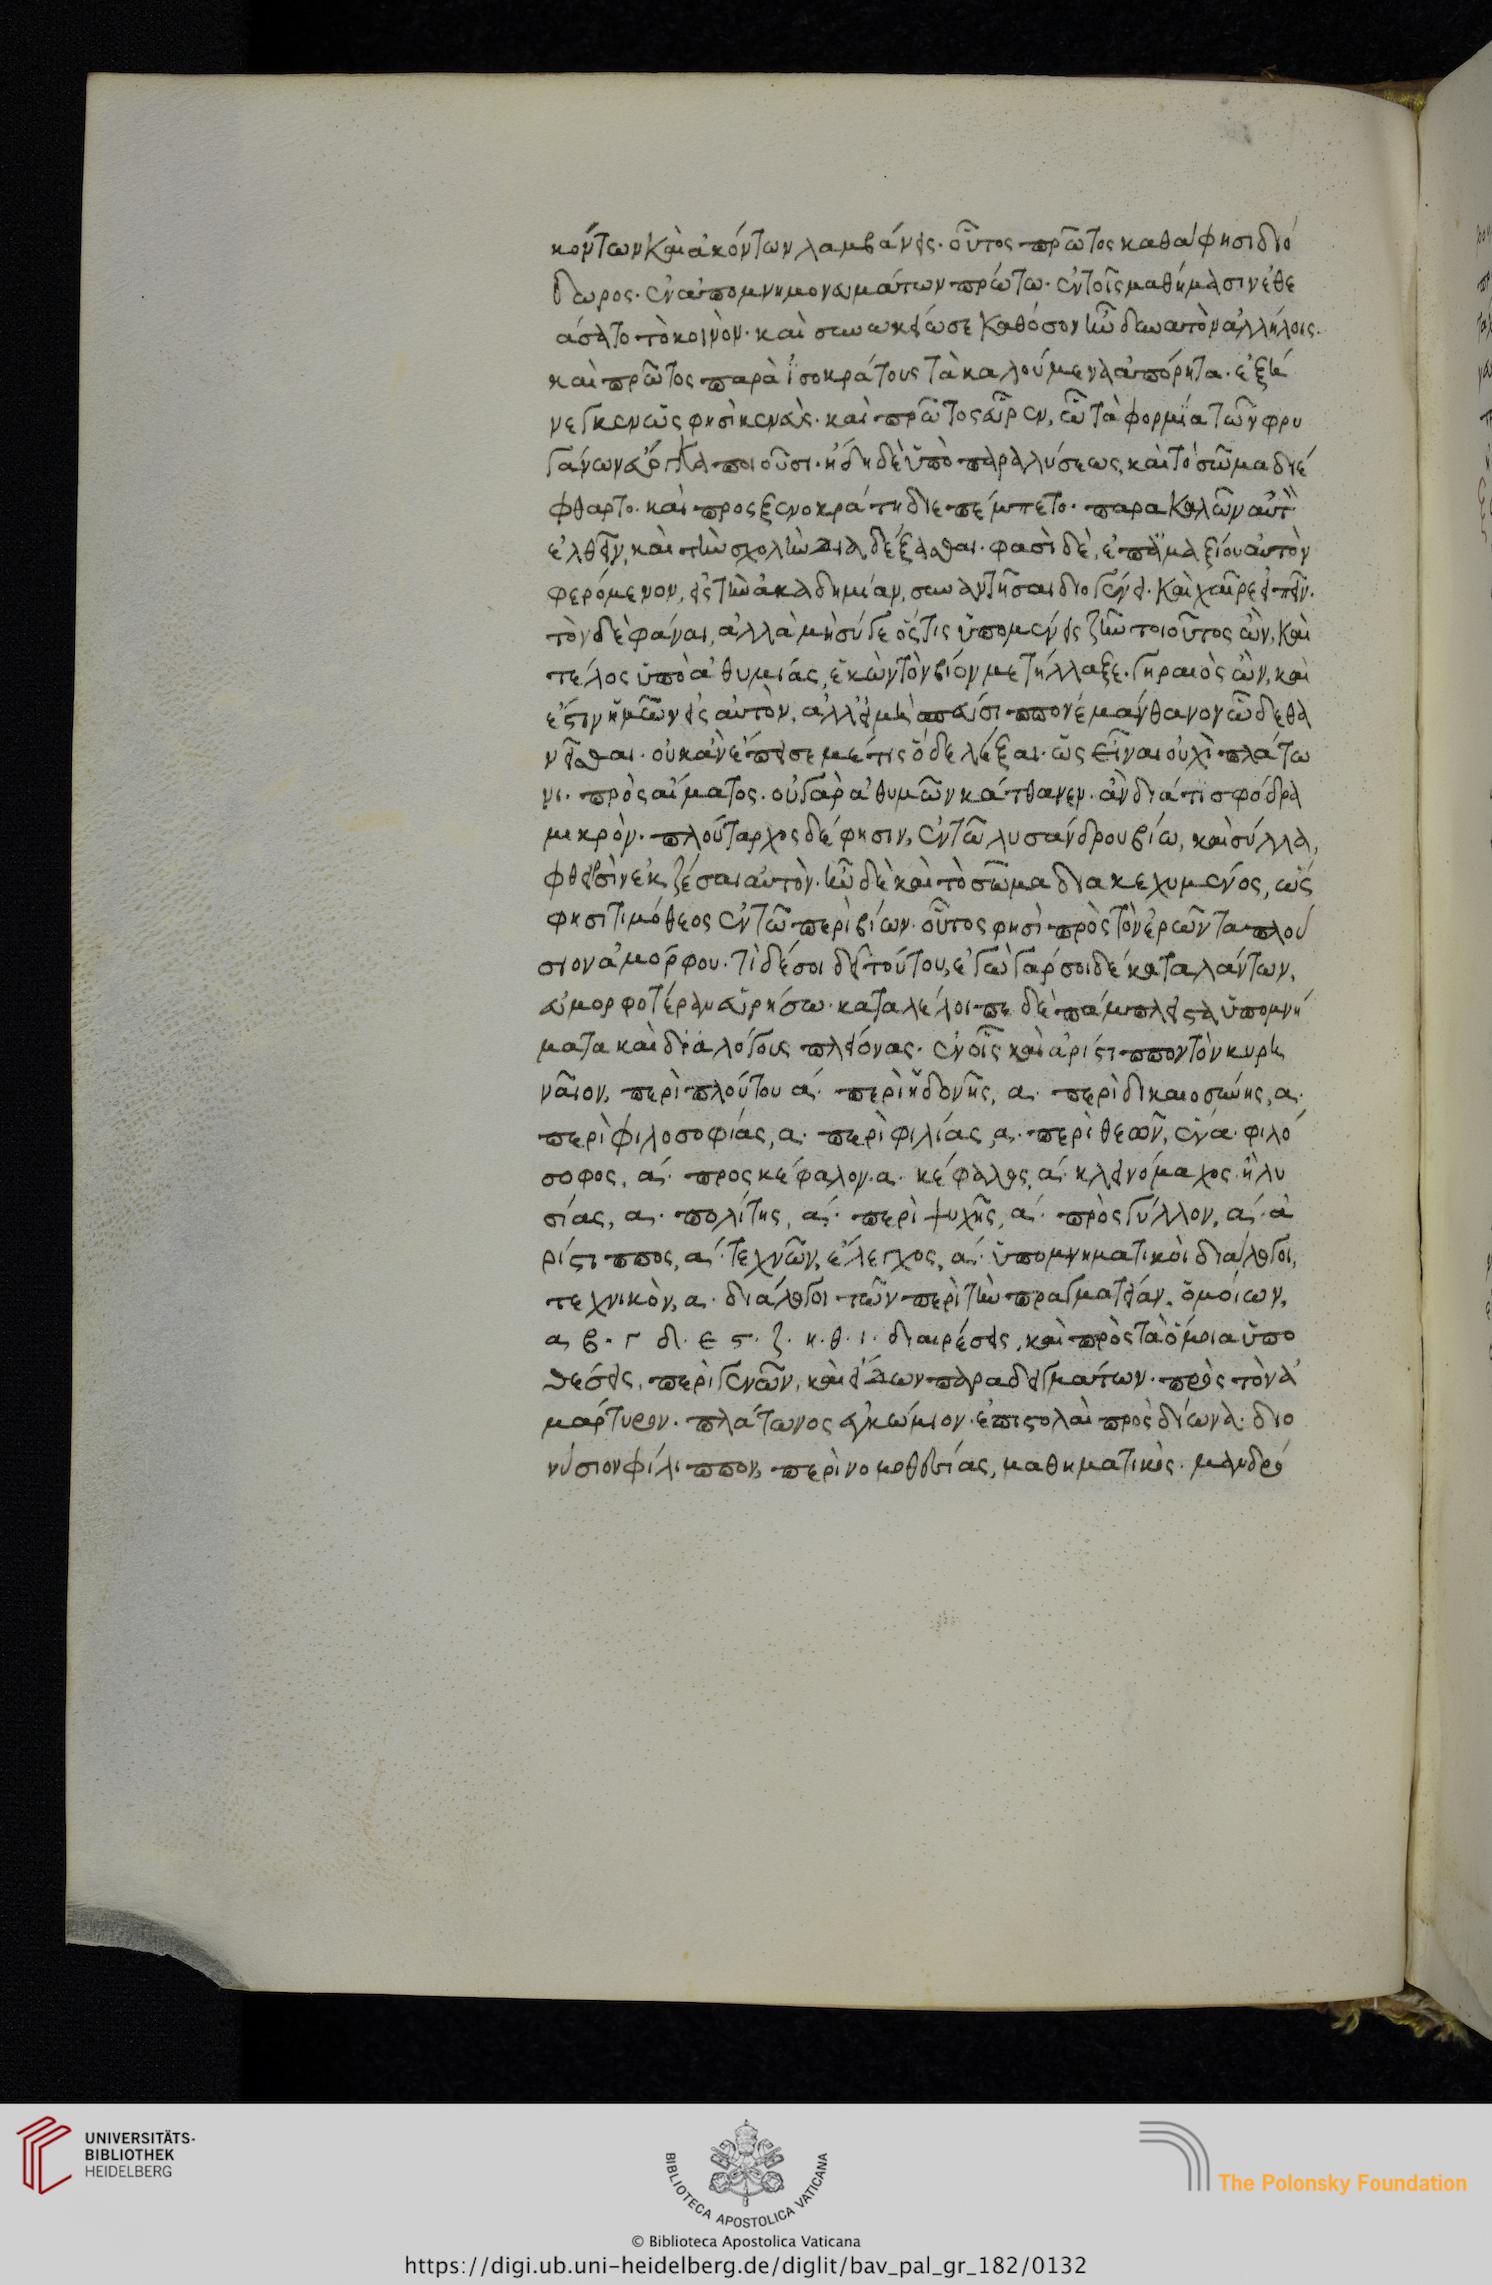 κόντων καὶ ἀκόντων λαμβάνεις. οὗτος πρῶτος καθά φησι διό
δωρος. ἐν ἀπομνημονευμάτων πρώτω. ἐν τοῖς μαθήμασιν ἐθε
άσατο τὸ κοινὸν. καὶ συνωκείωσε καθόσον ἦν δυνατὸν ἀλλήλοις.
καὶ πρῶτος παρὰ ἰσοκράτους τὰ καλούμενα ἀπόρητα. ἐξή
νεγκεν ὥς φησὶ κενεὺς. καὶ πρῶτος εὗρεν, ὧ τὰ φορμία τῶν φρυ
γάνων εὔογκα ποιοῦσι. ἤδη δὲ ὑπὸ παραλύσεως, καὶ τὸ σῶμα διέ
φθαρτο. καὶ προς ξενοκράτη διεπέμπετο. παρακαλῶν αὐτὸν
ἐλθεῖν, καὶ τὴν σχολὴν διαδέξασθαι. φασὶ δὲ, ἐπ ἀμαξίου αὐτὸν
φερόμενον, εἰς τὴν ἀκαδημίαν, συναντῆσαι διογένει. καὶ χαῖρε εἰπεῖν.
τὸν δὲ φάναι, ἀλλὰ μὴ σύ γε ὅστις ὑπομένεις ζῆν τοιοῦτος ὢν, καὶ
τέλος ὑπὸ ἀθυμιάς, ἑκὼν τὸν βίον μετήλλαξε. γηραιὸς ὢν, καὶ
ἔστιν ἡμῶν εἰς αὐτὸν, ἀλλ εἰ μὴ σπεύσιππον ἐμάνθανον ὧδε θα
νεῖσθαι. οὐκ ἂν ἔπεισέ με τις ὅδε λέξαι. ὡς εἶναι οὐχὶ πλάτω
νι. πρὸς αἵματος. οὐ γὰρ ἀθυμῶν κάτθανεν. ἂν διά τι σφόδρα
μικρὸν. πλούταρχος δέ φησιν, ἐν τῶ λυσάνδρου βίω, καὶ σύλλα,
φθειρσὶν ἐκζέσαι αὐτὸν. ἦν δὲ καὶ τὸ σῶμα διακεχυμένος, ὥς
φησι τιμόθεος ἐν τῶ περὶ βίων. οὗτος φησὶ πρὸς τὸν ἐρῶντα πλού
σιον ἀμόρφου. τὶ δέ σοι δεῖ τούτου, ἐγὼ γάρ σοι δέκα ταλάντων,
εὐμορφοτέραν εὑρήσω. καταλέλοιπε δὲ πάμπλειστα ὑπομνή
ματα καὶ διαλόγους πλείονας. ἐν οἷς καὶ ἀρίστιππον τὸν κυρη
ναῖον, περὶ πλούτου ά. περὶ ἡδονῆς, α. περὶ δικαιοσύνης, α.
περὶ φιλοσοφίας, α. περὶ φιλίας, α. περὶ θεῶν, ἕνα. φιλό
σοφος, ά. προς κέφαλον. α. κέφαλος, ά. κλεινόμαχος. ἢ λυ
σίας, α. πολίτης, ά. περὶ ψυχῆς, ά. πρὸς γύλλον, ά. ἀ
ρίστιππος, ά. τεχνῶν, ἔλεγχος, ά. ὑπομνηματικοὶ διάλογοι,
τεχνικὸν, α. διάλογοι τῶν περὶ τὴν πραγματείαν, ὁμοίων,
α β. γ δ. ε ς. ζ. η. θ. ι. διαιρέσεις, καὶ πρὸς τὰ ὅμοια ὑπο
θέσεις, περὶ γενῶν, καὶ εἴδων παραδειγμάτων. πρὸς τὸν ἀ
μάρτυρον. πλάτωνος ἐγκώμιον. ἐπιστολαὶ πρὸς δίωνα. διο
νύσιον φίλιππον, περὶ νομοθεσίας, μαθηματικὸς. μανδρό
UNIVERSITÄTS-
BIBLIOTHEK
HEIDELBERG
BIBLIOTECA APOSTOLICA VATICANA
The Polonsky Foundation
© Biblioteca Apostolica Vaticana
https://digi.ub.uni-heidelberg.de/diglit/bav_pal_gr_182/0132